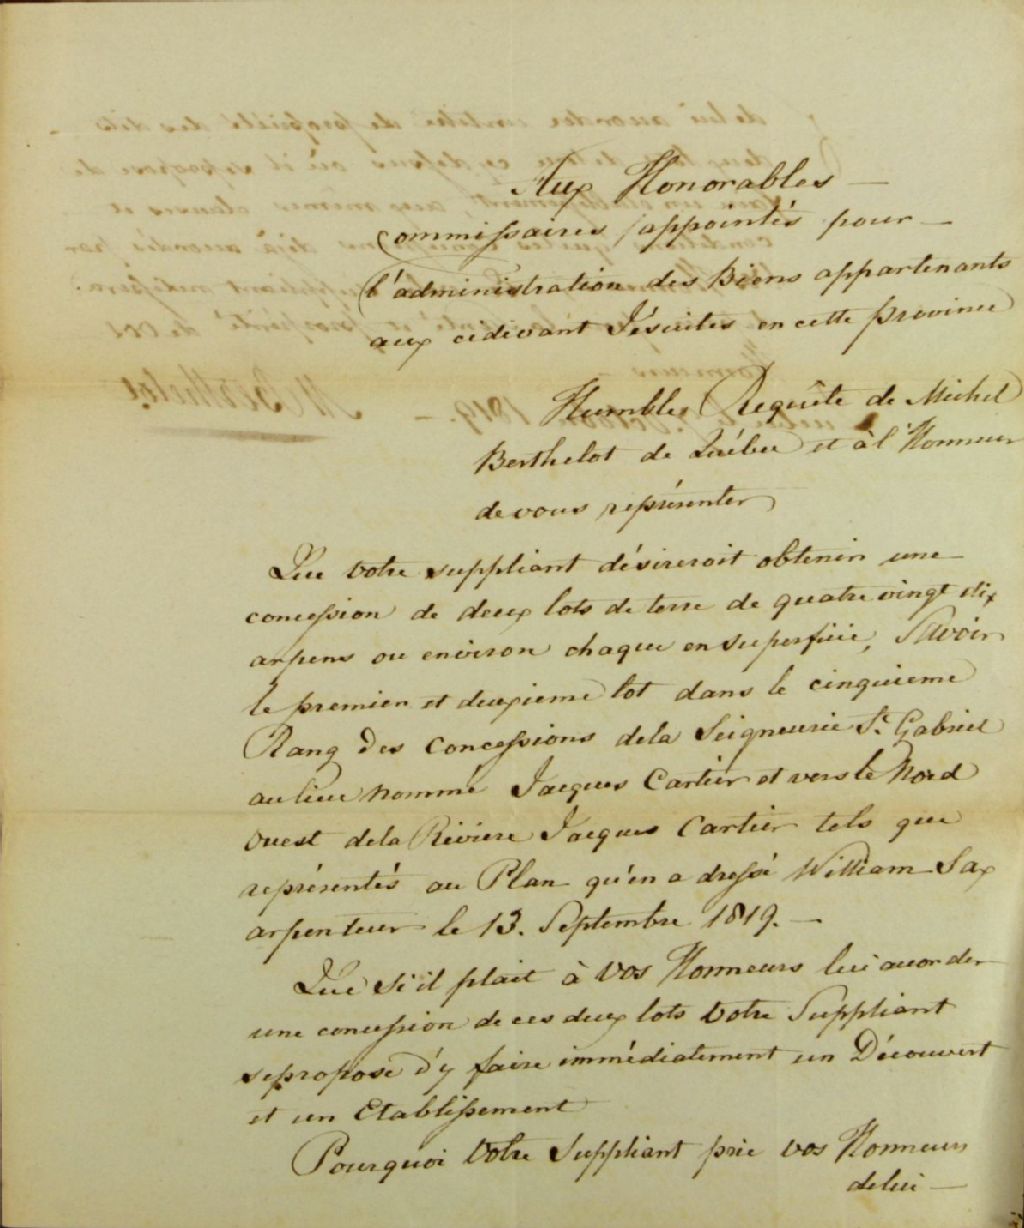 Aux Honorables —
Commissaires appointés pour —
l'administration des Biens appartenants
aux cidevant Jésuites en cette province
Humble Requête de Michel
Berthelot de Québec et à l'Honneur
de vous représenter
Que votre suppliant désireroit obtenir une
concession de deux lots de terre de quatre vingt dix
arpens ou environ chaque en superficie, Savoir
le premier et deuxieme lot dans le cinquieme
Rang des Concessions dela Seigneurie St. Gabriel
au lieu nommé Jacques Cartier et vers le Nord
Ouest dela Riviere Jacques Cartier tels que
représentés au Plan qu'en a dressé William Sax
arpenteur le 13. Septembre 1819. —
Que Si il plait à Vos Honneurs lui accorder
une concession de ces deux lots Votre Suppliant
se propose d'y faire immédiatement un Découvert
et un Etablissement
Pourquoi Votre Suppliant prie vos Honneurs
de lui —